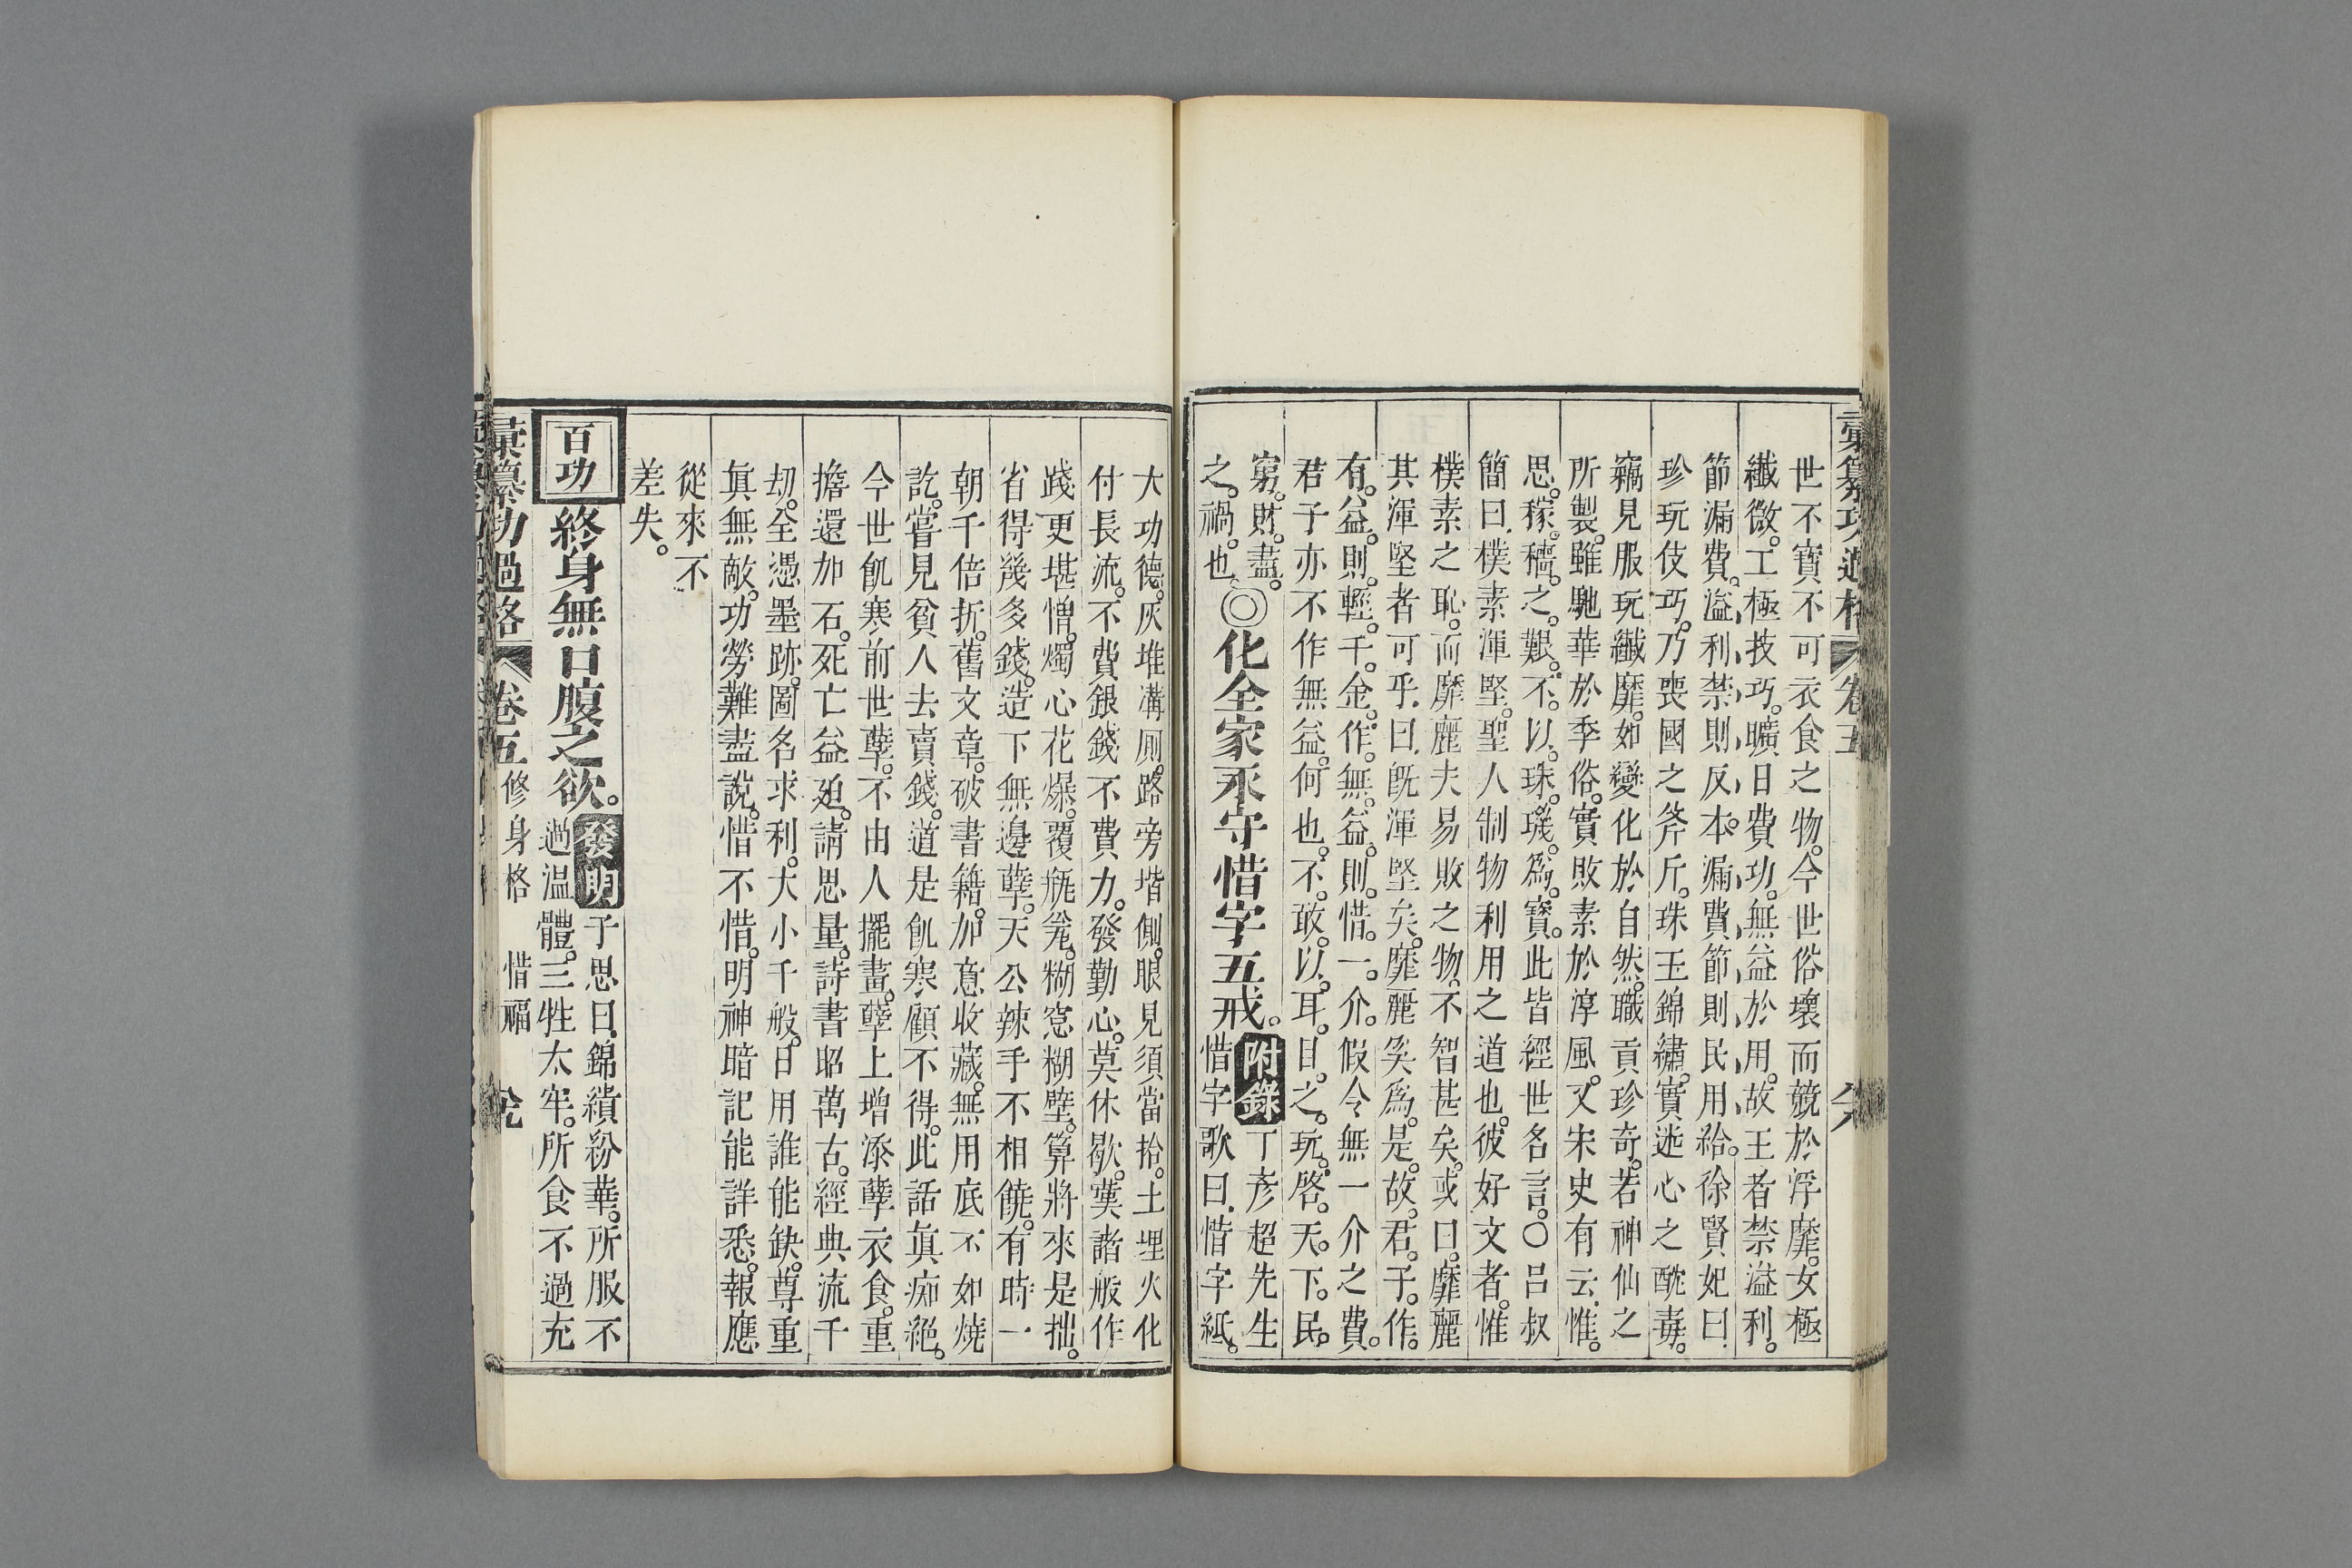 彙纂功過格 卷五
世不寶不可衣食之物。今世俗壞而競於浮靡。女極
纖微。工極技巧。曠日費功。無益於用。故王者禁溢利。
節漏費。溢利禁則反本。漏費節則民用給。徐賢妃曰.
珍玩伎巧。乃喪國之斧斤。珠玉錦繡。實迷心之酖毒。
竊見服玩纖靡。如變化於自然。職貢珍奇。若神仙之
所製。雖馳華於季俗。實敗素於淳風。又宋史有云.惟。
思。稼。穡。之。艱。不。以。珠。璣。爲。寶。此皆經世名言。〇呂叔
簡曰.樸素渾堅。聖人制物利用之道也。彼好文者。惟
樸素之恥。而靡麗夫易敗之物。不智甚矣。或曰。靡麗
其渾堅者可乎.曰.旣渾堅矣。靡麗奚爲。是。故。君。子。作。
有。益。則。輕。千。金。作。無。益。則。惜。一。介。假令無一介之費。
君子亦不作無益。何也。不。敢。以。耳。目。之。玩。啓。天。下。民。
窮。財。盡。
之。禍。也。◎化全家永守惜字五戒。附錄丁彥超先生
惜字歌曰.惜字紙。
大功德。灰堆溝厠。路旁堦側。眼見須當拾。土埋火化
付長流。不費銀錢不費力。發勤心。莫休歇。嘆諸般作
踐更堪憎。燭心花爆。覆瓶瓮。糊窓糊壁。算將來是拙。
省得幾多錢。造下無邊孽。天公辣手不相饒。有時一
朝千倍折。舊文章。破書籍。加意收藏。無用底不如燒
訖。嘗見貧人去賣錢。道是飢寒顧不得。此話眞痴絕。
今世飢寒前世孽。不由人擺畫。孽上增添孽衣食。重
擔還加石。死亡益廹。請思量。詩書昭萬古。經典流千
刧。全憑墨跡。圖名求利。大小千般。日用誰能缺。尊重
眞無敵。功勞難盡說。惜不惜。明神暗記能詳悉。報應
從來不
差失。
百功 終身無口腹之欲。發明子思曰.錦繢紛華。所服不
過温體。三牲太牢。所食不過充
彙纂功過格 卷五 修身格 惜福